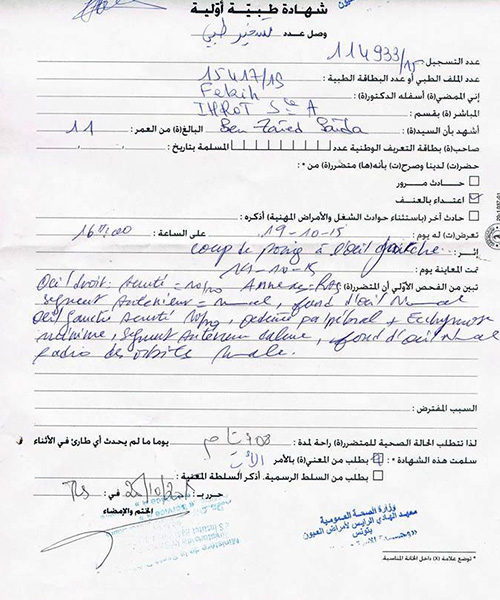 شهادة طبيّة أوّلية
وصل عدده تسخير طبي
عدد التسجيل 114933/15
عدد الملف الطبي أو عدد البطاقة الطبية: 15417/15
إني الممضي(ة) أسفله الدكتور(ة): Fekih
المباشر(ة) بقسم: A
أشهد بأن السيد(ة): Ben Saida البالغ(ة) من العمر: 11
صاحب(ة) بطاقة التعريف الوطنية عدد المسلمة بتاريخ:
حضر(ت) لدينا وصرح(ت) بأنه(ها) متضرر(ة) من *:
حادث مرور
اعتداء بالعنف
حادث آخر (باستثناء حوادث الشغل والأمراض المهنية) أذكره:
تعرض(ت) له يوم: 19-10-15 على الساعة: 16h00
إثر: coup de poing à l'oeil gauche
تمت المعاينة يوم: 19-10-15
تبين من الفحص الأولي أن المتضرر(ة): Oeil droit: acuité = 10/10
segment antérieur = normal, fond d'oeil Normal
oeil gauche acuité 10/10, oedème palpébral + Ecchymose
minime, segment antérieur calme, fond d'oeil Normal
radio des orbites normale.
السبب المفترض:
لذا تتطلب الحالة الصحية للمتضرر(ة) راحة لمدة: يوما ما لم يحدث أي طارئ في الأثناء
سلمت هذه الشهادة *: بطلب من المعني(ة) بالأمر الأب
بطلب من السلط الرسمية. أذكر السلطة المعنية:
حرر بـ: في:
الختم والإمضاء
وزارة الصحة العمومية
معهد الهادي الرايس لأمراض العيون
بتونس
* توضع علامة (X) داخل الخانة المناسبة.